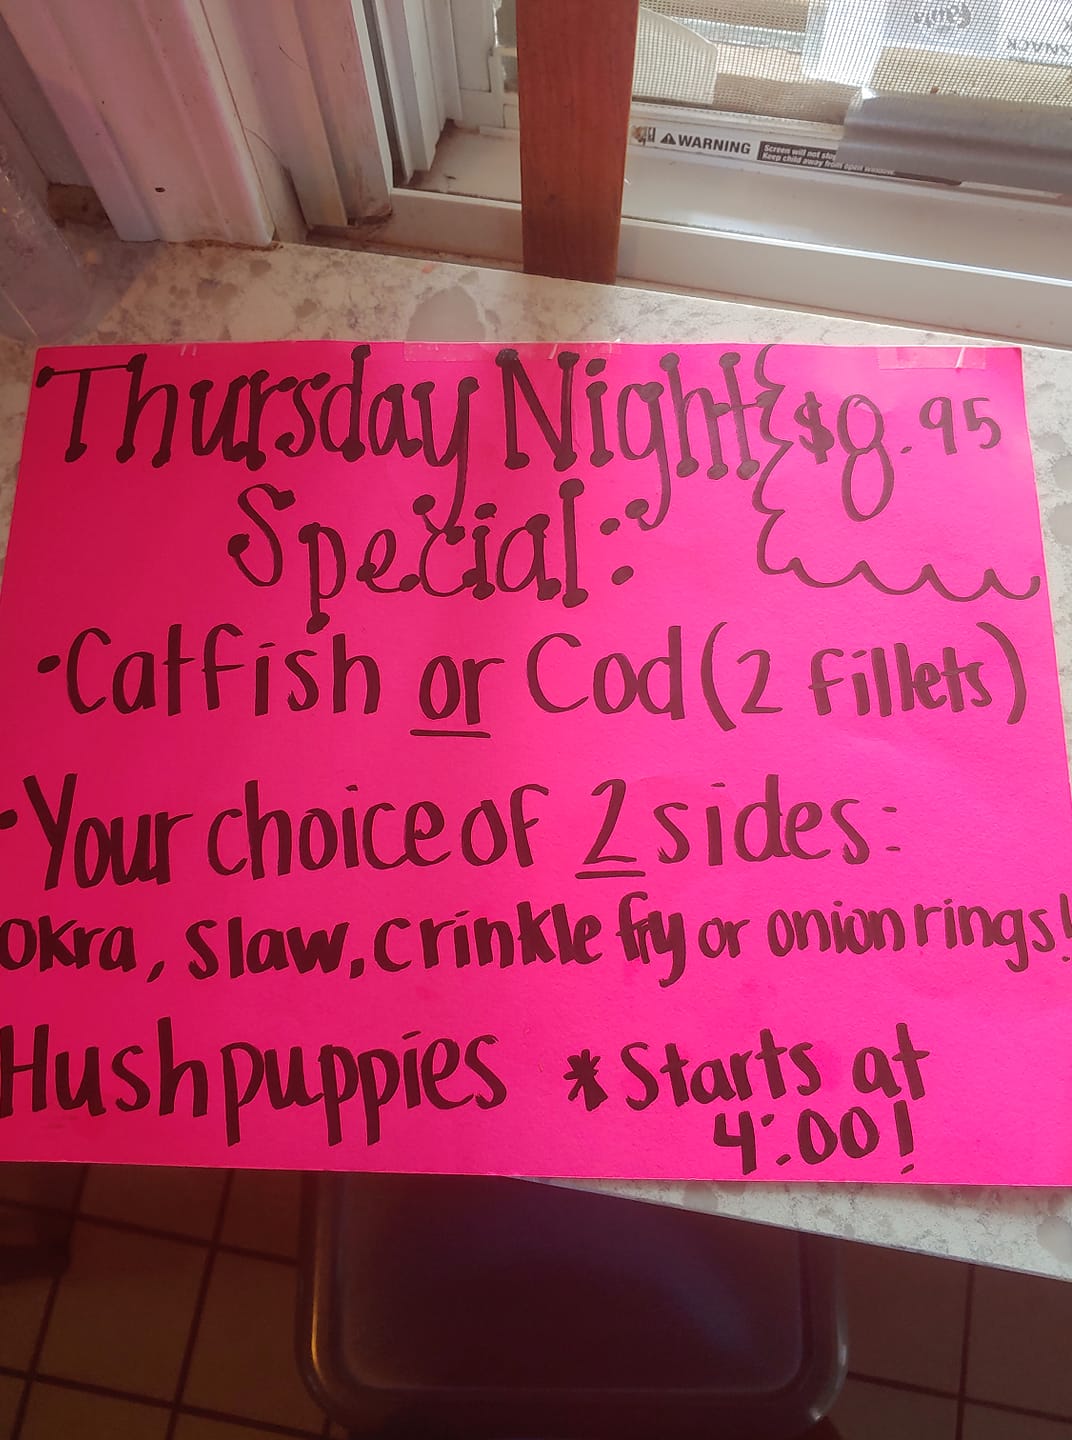 SNACK
WARNING
Screen will not stop
Keep child away from open window.
Thursday Night $8.95
Special:
·Catfish or Cod (2 fillets)
·Your choice of 2 sides:
okra, slaw, crinkle fry or onion rings!
Hushpuppies *Starts at
4:00!